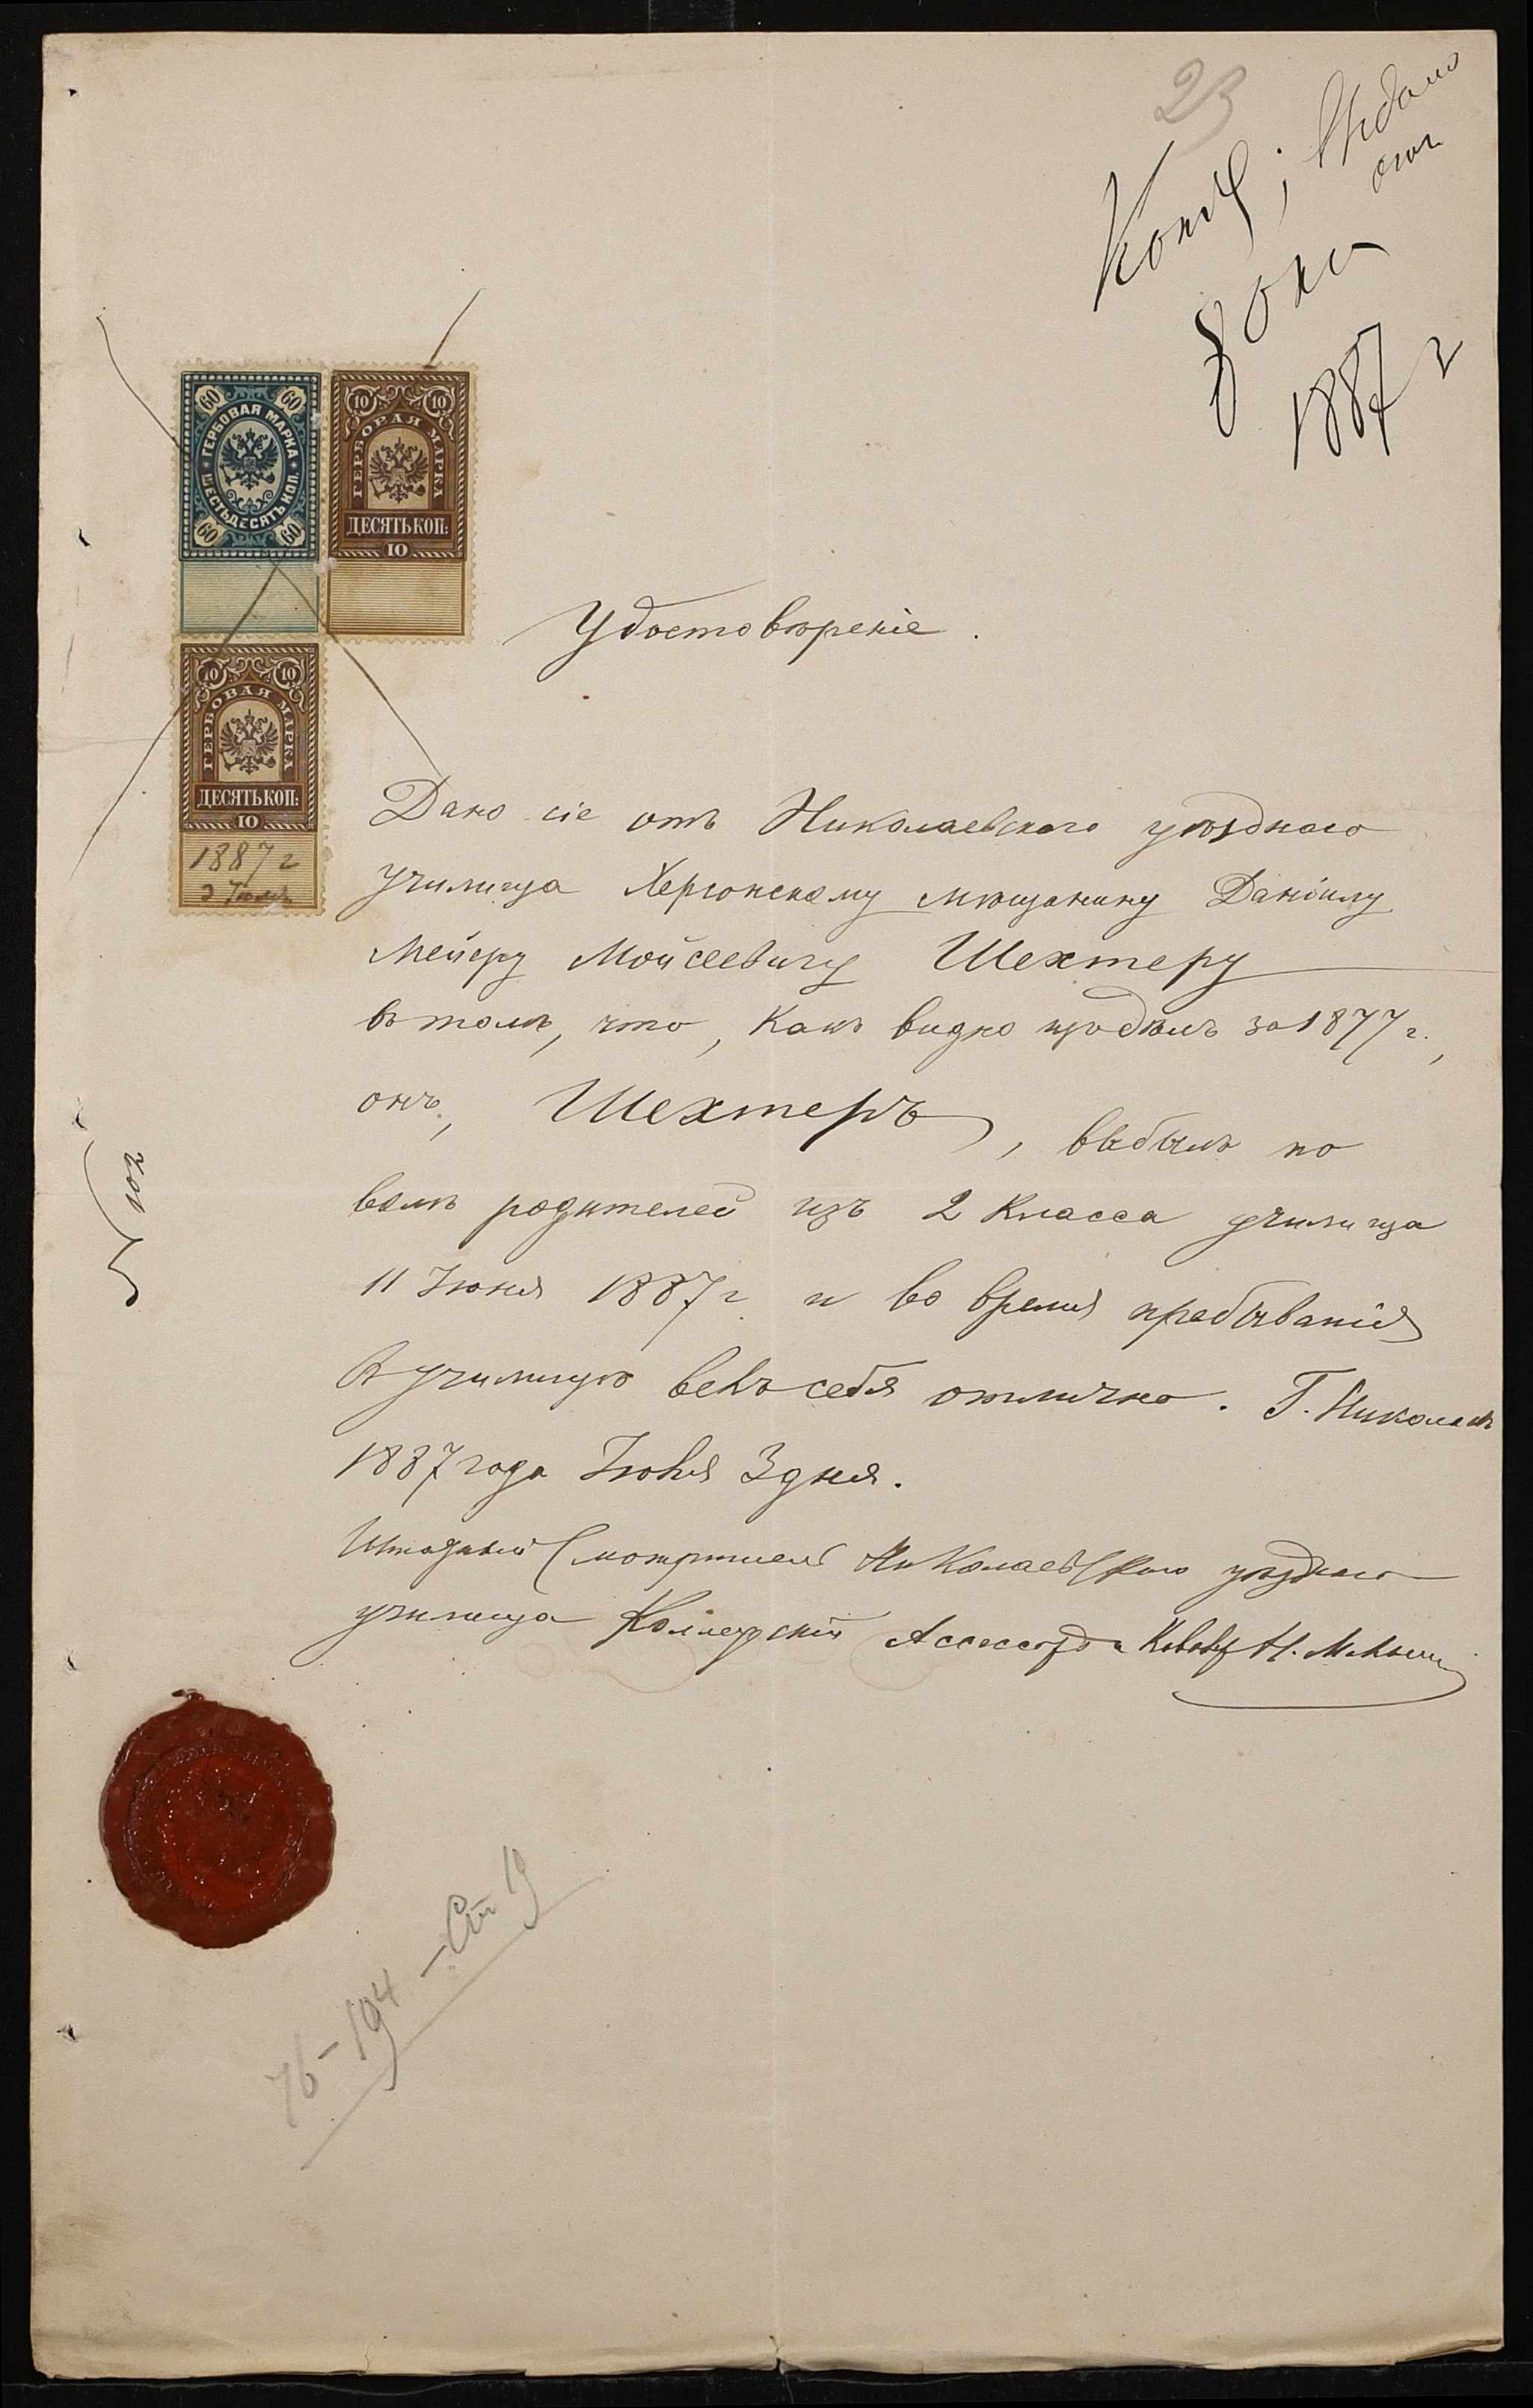 23
1887 г
60 60
ГЕРБОВАЯ МАРКА
ШЕСТЬДЕСЯТЬ КОП.
60 60
10 10
ГЕРБОВАЯ МАРКА
ДЕСЯТЬ КОП:
10
10 10
ГЕРБОВАЯ МАРКА
ДЕСЯТЬ КОП:
10
1887 г
3
Удостовѣреніе.
Дано сіе отъ Николаевскаго уѣзднаго
училища Херсонскому мѣщанину Даніилу
Мейеру Мойсеевичу Шехтеру
въ томъ, что, какъ видно изъ дѣлъ за 1877 г.,
онъ, Шехтеръ, выбылъ по
волѣ родителей изъ 2 класса училища
11 Іюня 1887 г. и во время пребыванія
въ училищѣ велъ себя отлично. Г. Николаевъ
1887 года Іюня 3 дня.
Штатный Смотритель Николаевскаго уѣзднаго
училища Коллежскій Ассессоръ и Кавалеръ Н.
№ 102
76-194-Ст 19